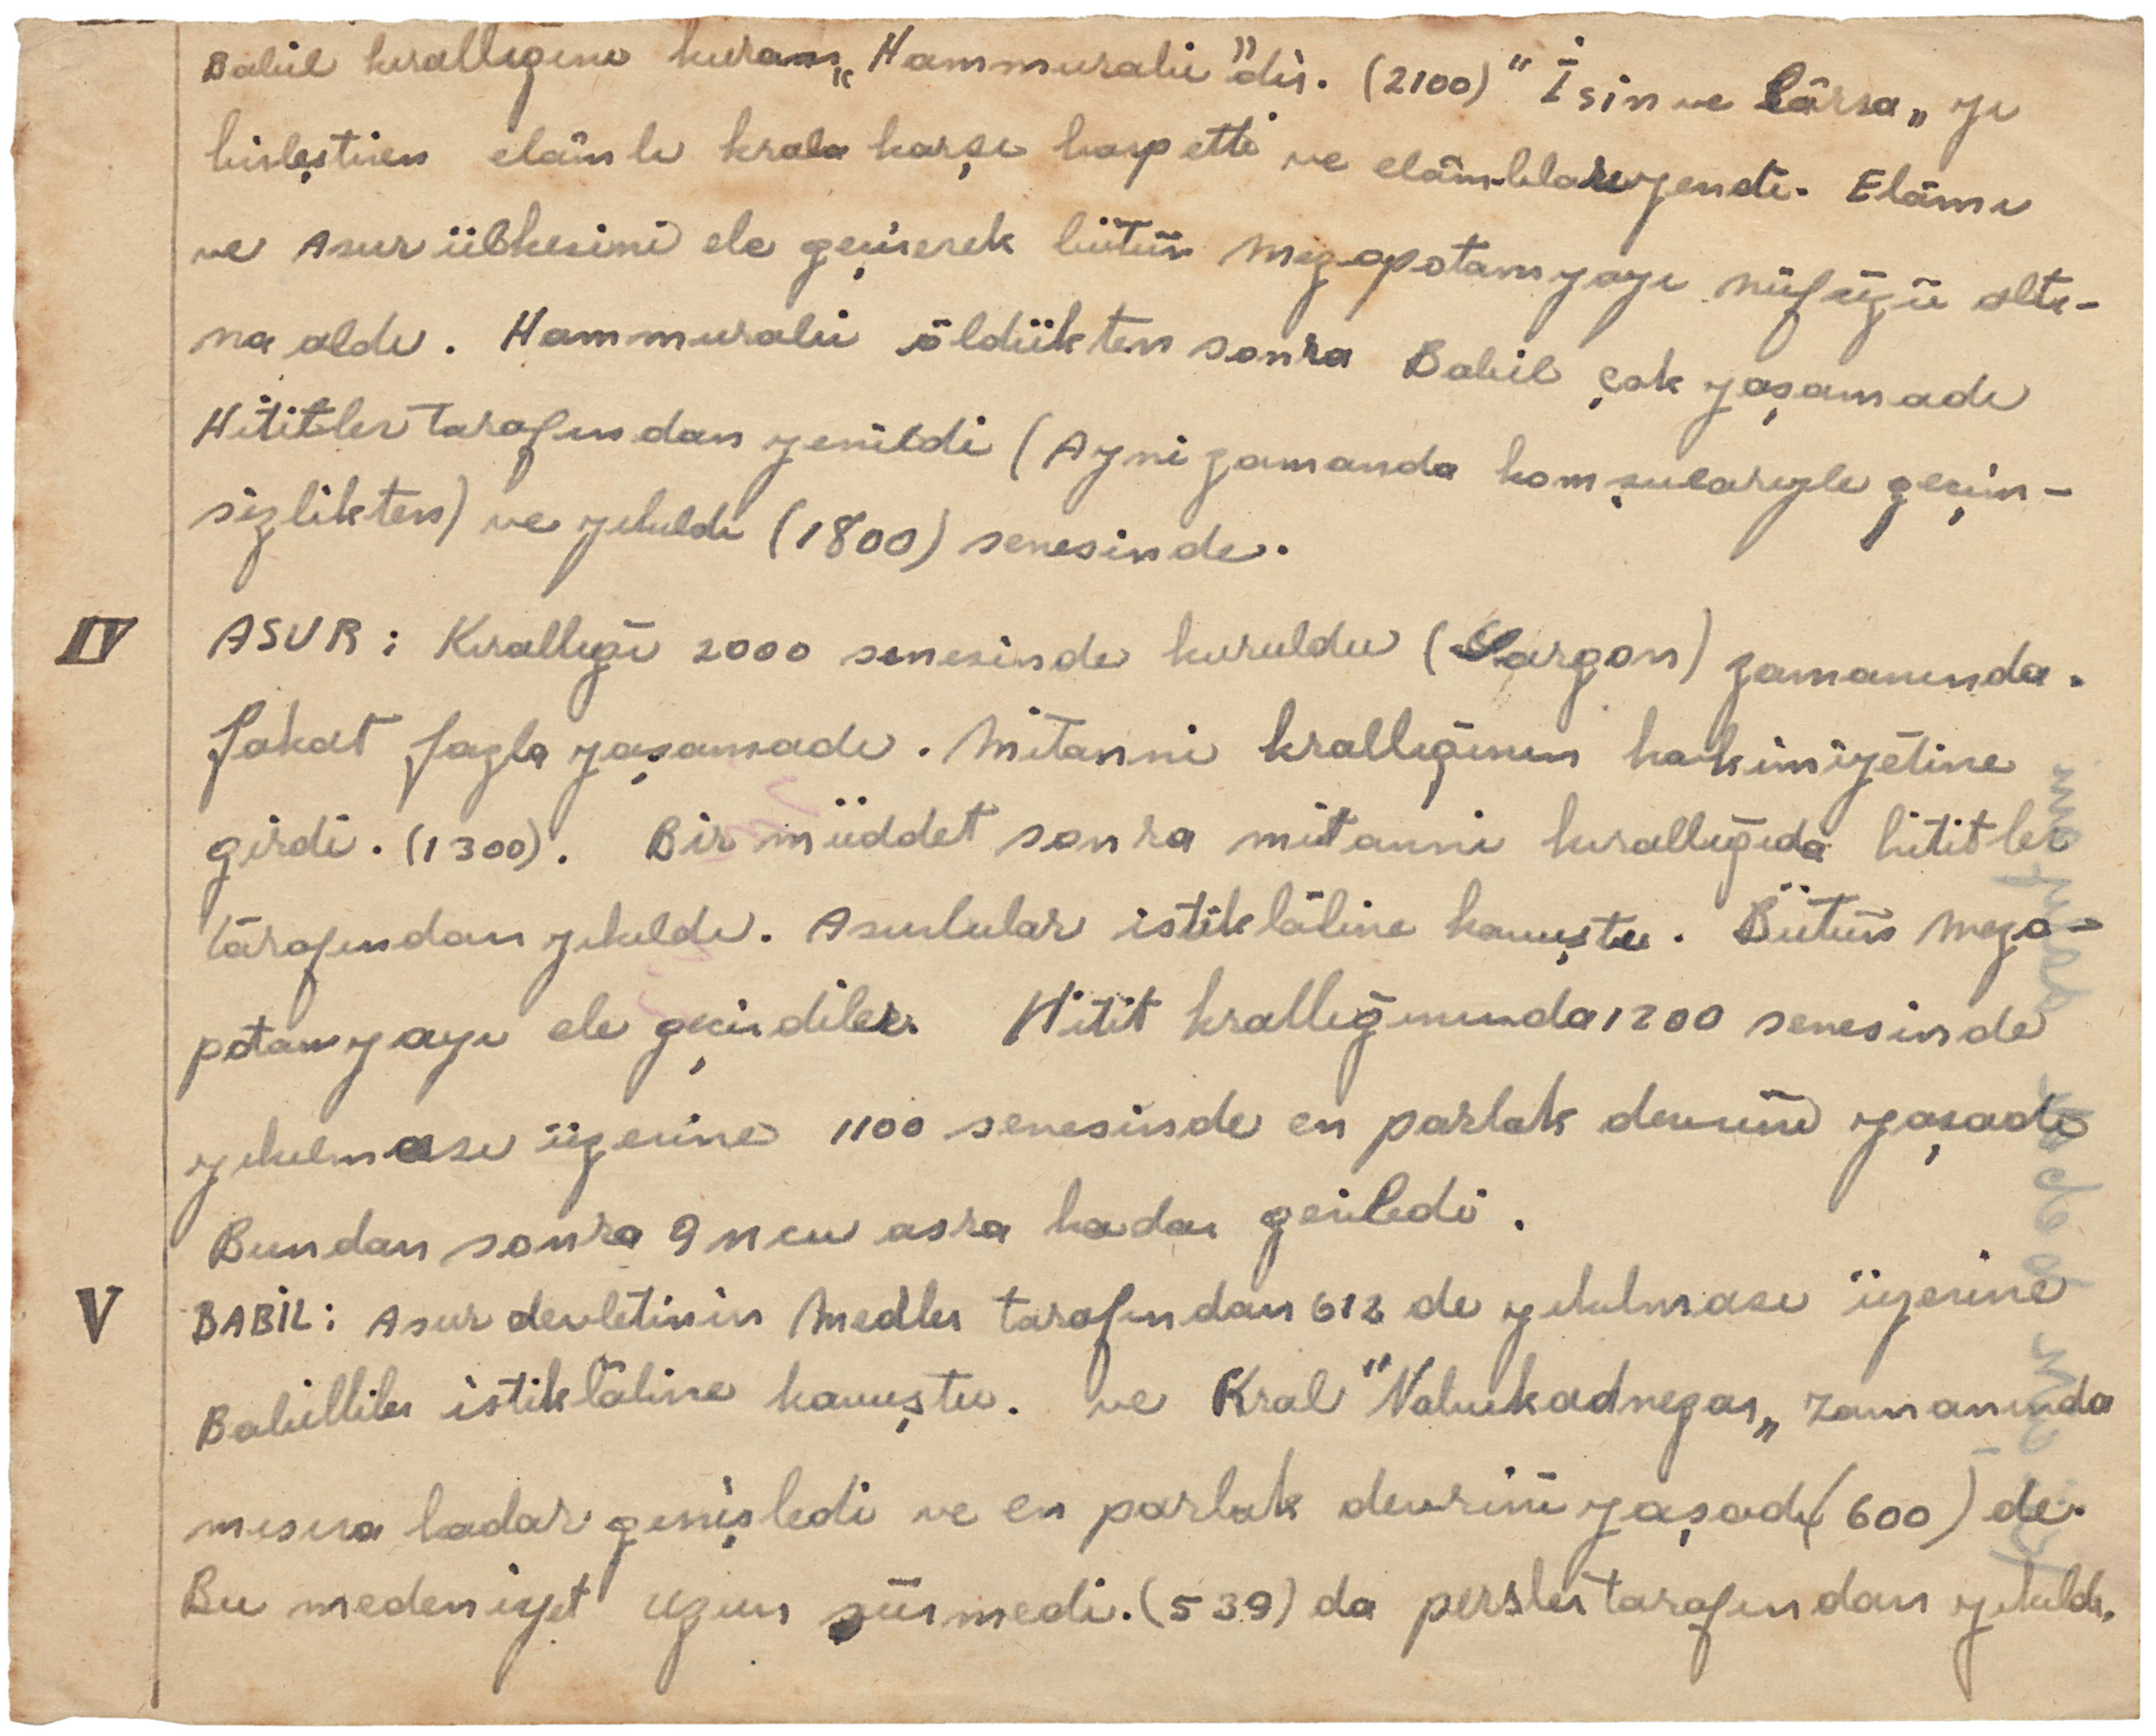 Babil kırallığını kuran „Hammurabi"dir. (2100) "İsin ve Lârsa„ yı
birleştiren elâmlı krala karşı harp etti ve elâmlıları yendi. Elâmı
ve Asur ülkesini ele geçirerek bütün Mezopotamyayı nüfüzü altı-
na aldı. Hammurabi öldükten sonra Babil çok yaşamadı
Hititler tarafından yenildi (Ayni zamanda komşularıyle geçin-
sizlikten) ve yıkıldı (1800) senesinde.
IV ASUR: Kırallığı 2000 senesinde kuruldu (Sargon) zamanında.
fakat fazla yaşamadı. Mitanni krallığının hakimiyetine
girdi. (1300). Bir müddet sonra mitanni kırallığıda hititler
tarafından yıkıldı. Asurlular istiklâline kavuştu. Bütün Mezo-
potamyayı ele geçirdiler. Hitit krallığınında 1200 senesinde
yıkılması üzerine 1100 senesinde en parlak devrini yaşadı
Bundan sonra 9 ncu asra kadar geriledi.
V BABİL: Asur devletinin Medler tarafından 612 de yıkılması üzerine
Babilliler istiklâline kavuştu. ve Kral "Nabukadnezar„ zamanında
mısıra kadar genişledi ve en parlak devrini yaşadı (600) de.
Bu medeniyet uzun sürmedi. (539) da persler tarafından yıkıldı.